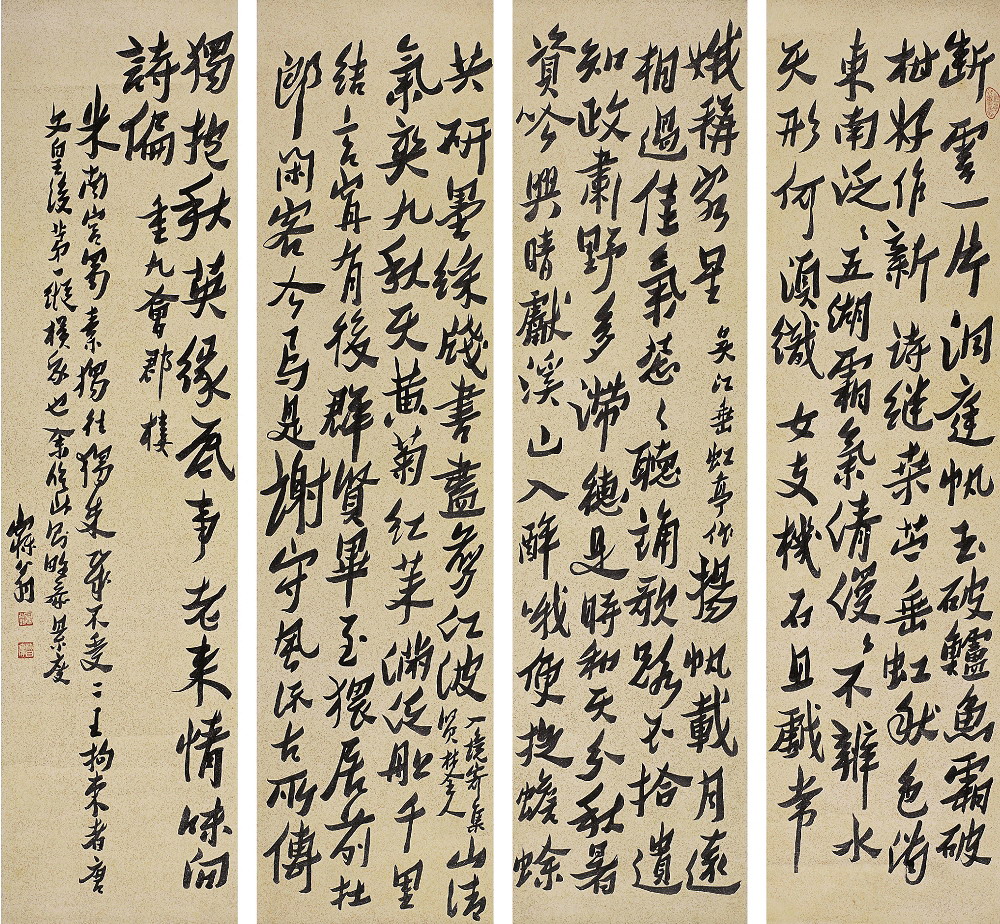 斷雲一片洞庭帆玉破鱸魚霜破
柑好作新詩繼桑苧垂虹秋色滿
東南泛々五湖霜氣清漫々不辨水
天形何須織女支機石且戲常
娥稱客星 吳江垂虹亭作 揚帆載月遠
相過佳氣葱々聽誦歌路不拾遺
知政肅野多滯穗是時和天分秋暑
資吟興晴獻溪山入醉哦便捉蟾蜍
共研墨綵牋書盡剪江波 入境寄集賢林舍人 山清
氣爽九秋天黃菊紅茱滿泛船千里
結言寧有後群賢畢至猥居前杜
郎閑客今焉是謝守風流古所傳
獨把秋英緣底事老來情味向
詩偏 重九會郡樓
米南宮蜀素獨往獨來不受二王拘束者唐
文皇後第一縱橫家也余臨此
翁